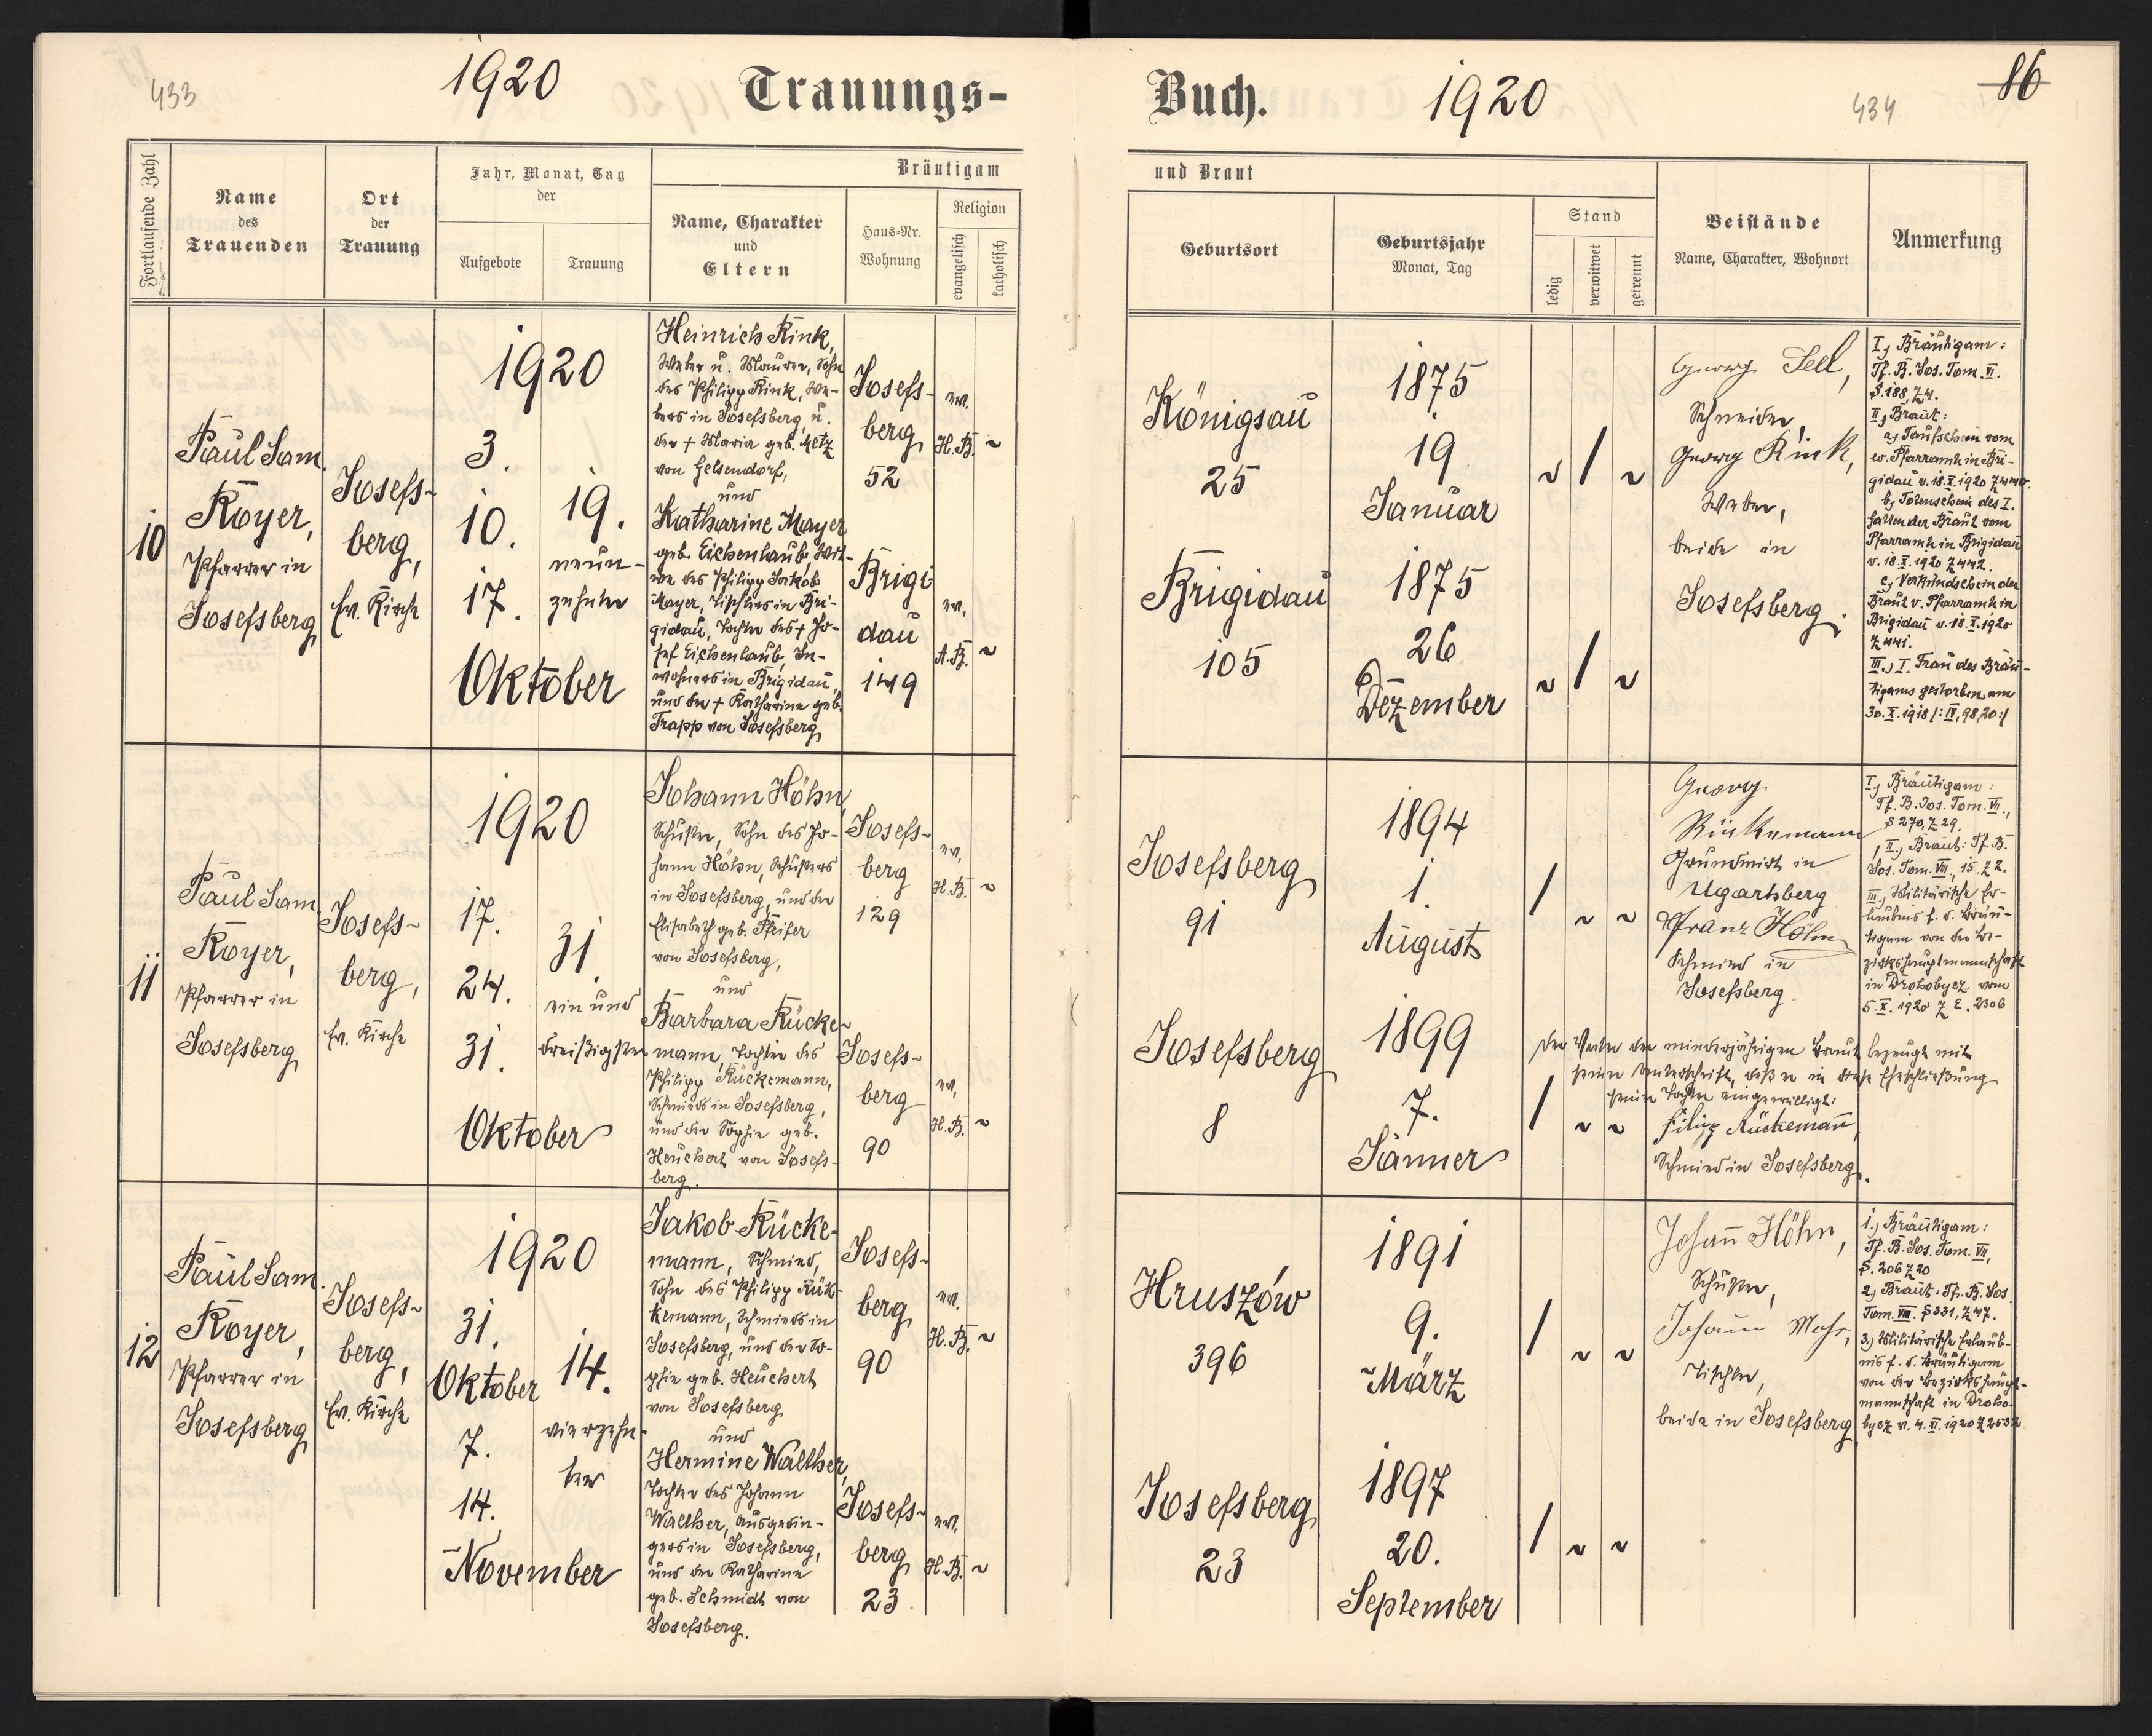 433
1920
Trauungs-
Buch.
1920
434
86
Fortlaufende Zahl
Name
des
Trauenden
Ort
der
Trauung
Jahr, Monat, Tag
der
Aufgebote
Trauung
Bräutigam
Name, Charakter
und
Eltern
Haus-Nr.
Wohnung
Religion
evangelisch
katholisch
und Braut
Geburtsort
Geburtsjahr
Monat, Tag
Stand
ledig
verwitwet
getrennt
Beistände
Name, Charakter, Wohnort
Anmerkung
10
Paul Sam.
Royer,
Pfarrer in
Josefsberg
Josefs-
berg,
Ev. Kirche
1920
3.
10.
17.
19.
neun-
zehnter
Oktober
Heinrich Rink,
Weber u. Maurer, Sohn
des Philipp Rink, We-
bers in Josefsberg, u.
der + Maria geb. Metz
von Gelsendorf,
und
Katharine Mayer
geb. Eichenlaub, Wit-
we des Philipp Jakob
Mayer, Tischlers in Bri-
gidau, Tochter des + Jo-
sef Eichenlaub, In-
wohners in Brigidau,
und der + Katharine geb.
Trapp von Josefsberg
Josefs-
berg
52
Brigi
dau
149
ev.
H.B. ~
ev.
A.B. ~
Königsau
25
Brigidau
105
1875
19
Januar
1875
26
Dezember
~ / ~
~ / ~
Georg Sell,
Schneider,
Georg Rink,
Weber,
beide in
Josefsberg.
I., Bräutigam:
Tf. B. Jos. Tom. VI.
S. 188, Z 4.
II., Braut:
a, Taufschein vom
ev. Pfarramte in Bri-
gidau v. 18. X. 1920 Z 440.
b, Totenschein des I.
Gatten der Braut vom
Pfarramte in Brigidau
v. 18. X. 1920 Z 442.
c, Verkündschein der
Braut v. Pfarramte in
Brigidau v. 18. X. 1920
Z 441.
III., I. Frau des Bräu-
tigams gestorben am
30. X. 1918 /: IV, 98, 20 :/
11
Paul Sam.
Royer,
Pfarrer in
Josefsberg
Josefs-
berg,
Ev. Kirche
1920
17.
24.
31.
31.
ein und
dreißigster
Oktober
Johann Höhn,
Schuster, Sohn des Jo-
hann Höhn, Schusters
in Josefsberg, und der
Elisabeth geb. Pfeifer
von Josefsberg,
und
Barbara Rücke-
mann, Tochter des
Philipp Rückemann,
Schmieds in Josefsberg,
und der Sophie geb.
Heuchert von Josefs-
berg.
Josefs-
berg
129
Josefs-
berg
90
ev.
H.B. ~
ev.
H.B. ~
Josefsberg
91
Josefsberg
8
1894
1.
August
1899
7.
Jänner
/ ~ ~
/ ~ ~
Georg
Rückemann
Grundwirt in
Ugartsberg
Franz Höhn
Schmied in
Josefsberg
Der Vater der minderjährigen Braut bezeugt mit
seiner Unterschrift, daß er in diese Eheschließung
seiner Tochter eingewilligt:
Filipp Rückemann,
Schmied in Josefsberg.
I., Bräutigam:
Tf. B. Jos. Tom. VI.,
S 270, Z 29.
II., Braut: Tf. B.
Jos. Tom. VII, 15. Z 2.
III., Militärische Er-
laubnis f. d. Bräu-
tigam von der Be-
zirkshauptmannschaft
in Drohobycz vom
5. X. 1920 Z E. 2306
12
Paul Sam.
Royer,
Pfarrer in
Josefsberg
Josefs-
berg,
Ev. Kirche
1920
31.
Oktober
7.
14.
14.
vierzehn-
ter
November
Jakob Rücke-
mann, Schmied,
Sohn des Philipp Rük-
kemann, Schmieds in
Josefsberg, und der So-
phie geb. Heuchert
von Josefsberg
und
Hermine Walther,
Tochter des Johann
Walther, Ausgedin-
gers in Josefsberg,
und der Katharine
geb. Schmidt von
Josefsberg.
Josefs-
berg
90
Josefs-
berg
23
ev.
H.B. ~
ev.
H.B. ~
Hruszów
396
Josefsberg
23
1891
9.
März
1897
20.
September
/ ~ ~
/ ~ ~
Johann Höhn,
Schuster,
Johann Mohr,
Tischler,
beide in Josefsberg
1., Bräutigam:
Tf. B. Jos. Tom. VII,
S. 206 Z 20
2, Braut: Tf. B. Jos
Tom. VII. S 331, Z 47.
3., Militärische Erlaub-
nis f. d. Bräutigam
von der Bezirkshaupt-
mannschaft in Droho-
bycz v. 4. XI. 1920 Z 2532